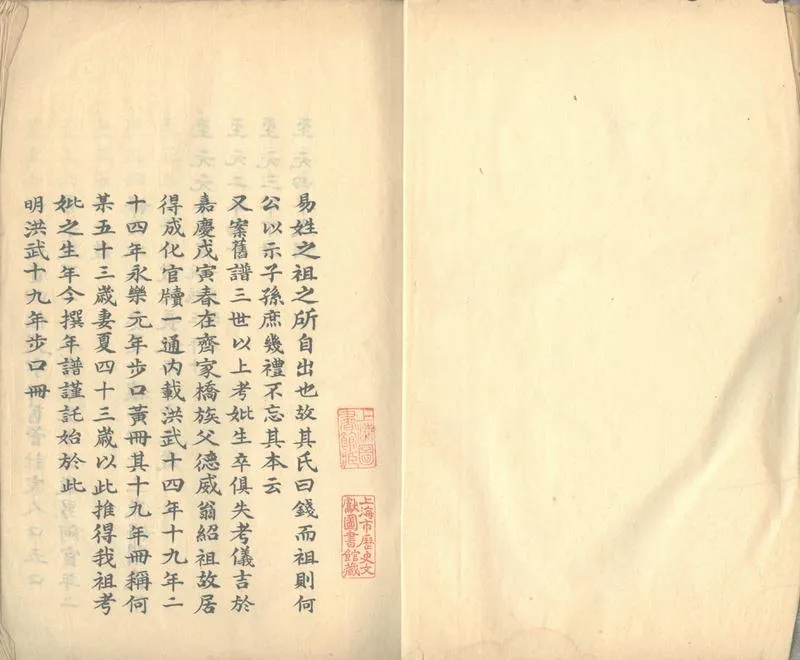 易姓之祖之所自出也故其氏曰錢而祖則何
公以示子孫庶幾禮不忘其本云
又案舊譜三世以上考妣生卒俱失考儀吉於
嘉慶戊寅春在齊家橋族父德威翁紹祖故居
得成化官牘一通內載洪武十四年十九年二
十四年永樂元年步口黃冊其十九年冊稱何
某五十三歲妻夏四十三歲以此推得我祖考
妣之生年今撰年譜謹託始於此
明洪武十九年步口冊
上海圖書館藏
上海市歷史文獻圖書館藏